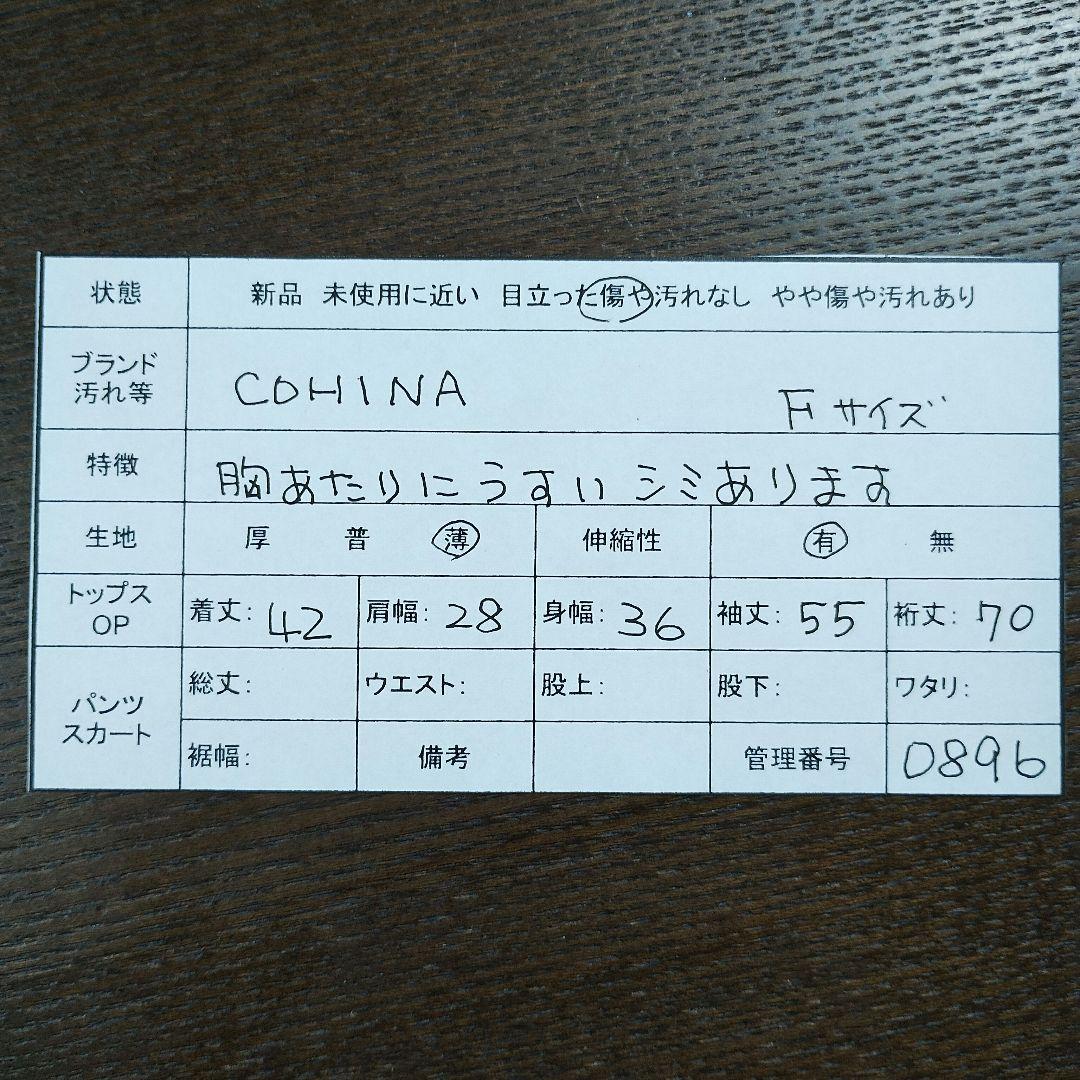 状態 新品 未使用に近い 目立った傷や汚れなし やや傷や汚れあり
ブランド
汚れ等 COHINA Fサイズ
特徴 胸あたりにうすいシミあります
生地 厚 普 薄 伸縮性 有 無
トップス
OP 着丈: 42 肩幅: 28 身幅: 36 袖丈: 55 裄丈: 70
パンツ
スカート 総丈: ウエスト: 股上: 股下: ワタリ:
裾幅: 備考 管理番号 0896